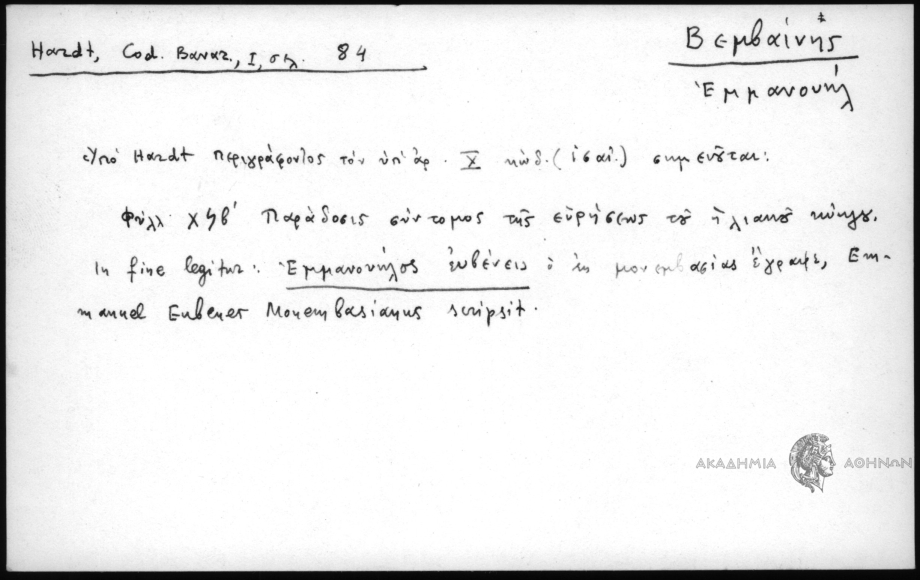 Hardt, Cod. Bavar., I, σελ. 84
Βεμβαίνης
Ἐμμανουήλ
Ὑπό Hardt περιγράφοντος τόν ὑπ' ἀρ. X κώδ. (ισαι.) σημειοῦται:
Φύλλ. χϟβ' Παράδοσις σύντομος τῆς εὑρήσεως τοῦ ἡλιακοῦ κύκλου.
In fine legitur: Ἐμμανουήλος ἐυβένεις ὁ ἐκ μονεμβασίας ἔγραψε, Em-
manuel Eubenes Monembasianus scripsit.
ΑΚΑΔΗΜΙΑ ΑΘΗΝΩΝ